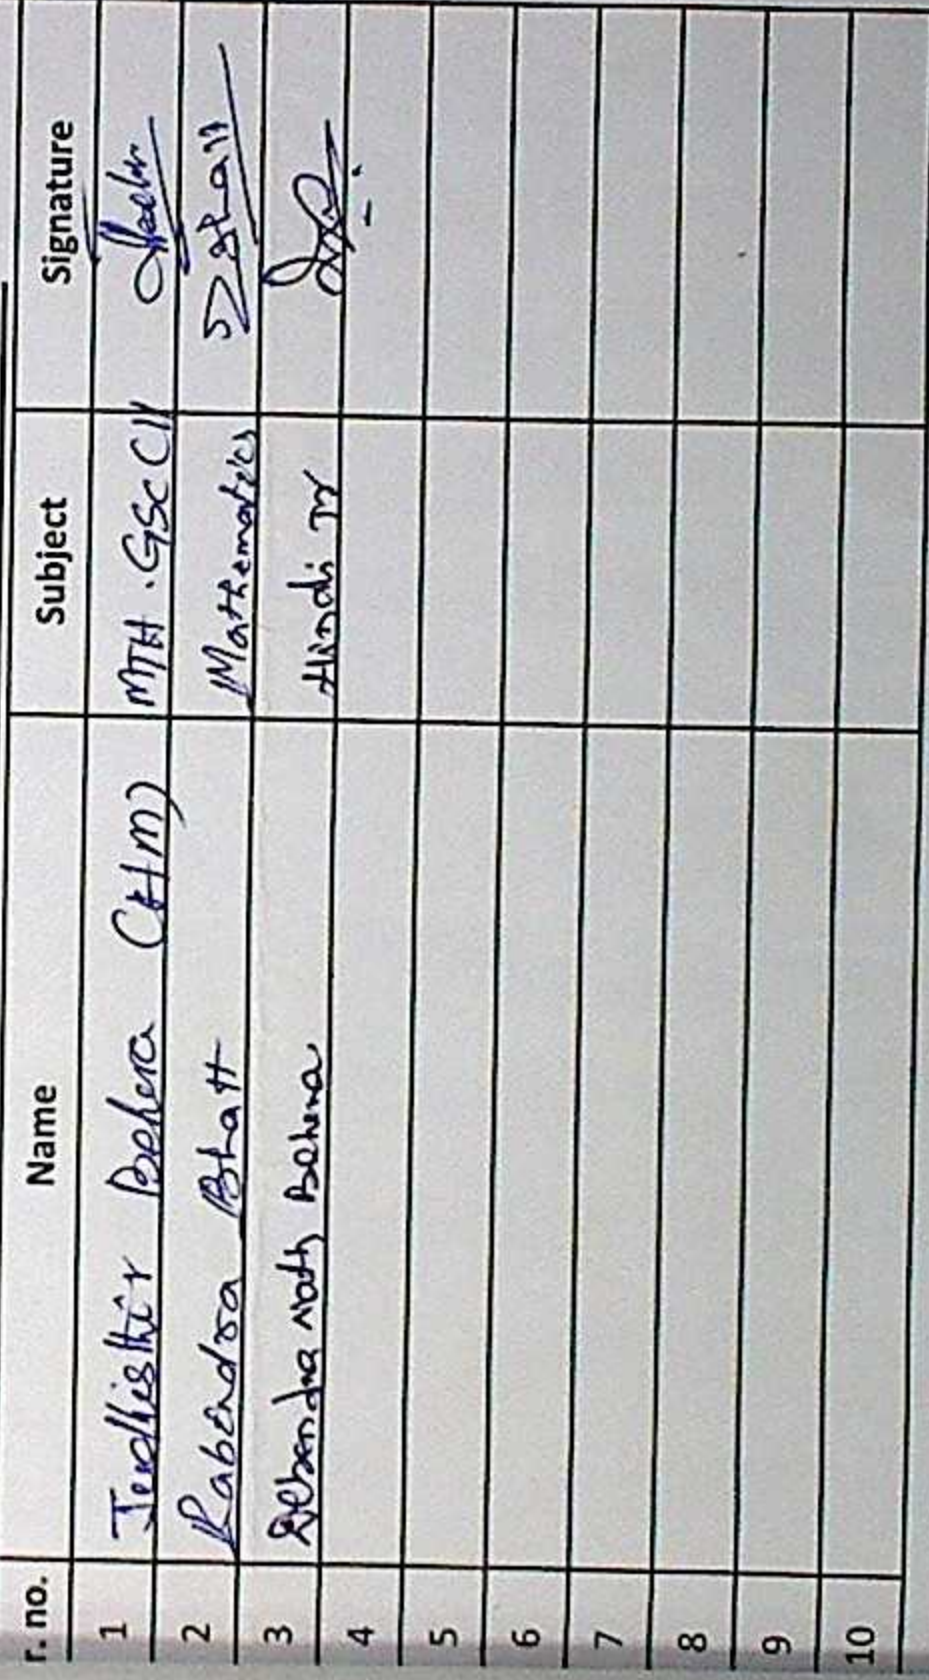 r. no. Name Subject Signature
1 Judhisthir Behera (HM) MTH. GSC
2 Rabendra Bhatt Mathematics
3 Debendra Nath Behera Hindi
4
5
6
7
8
9
10